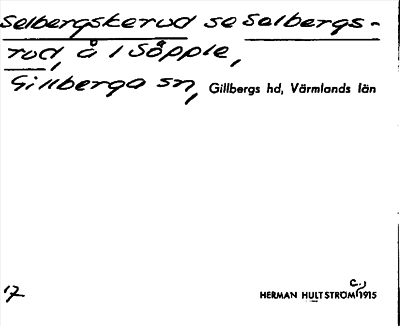 Selbergskerud se Salbergs-
rud, å i Söpple,
Gillberga sn, Gillbergs hd, Värmlands län
17
HERMAN HULTSTRÖM C., 1915